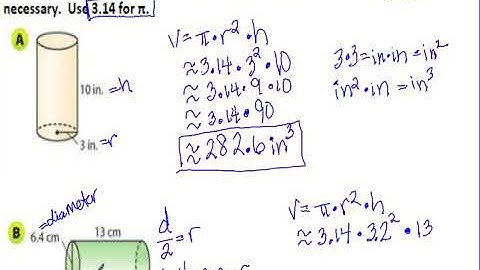 necessary. Use 3.14 for π.
A
10 in. =h
3 in. =r
V=π·r²·h
≈3.14·3²·10
≈3.14·9·10
≈3.14·90
≈282.6in³
3·3=in·in=in²
in²·in=in³
B
=diameter
6.4 cm
13 cm
d/2=r
V=π·r²·h
≈3.14·3.2²·13